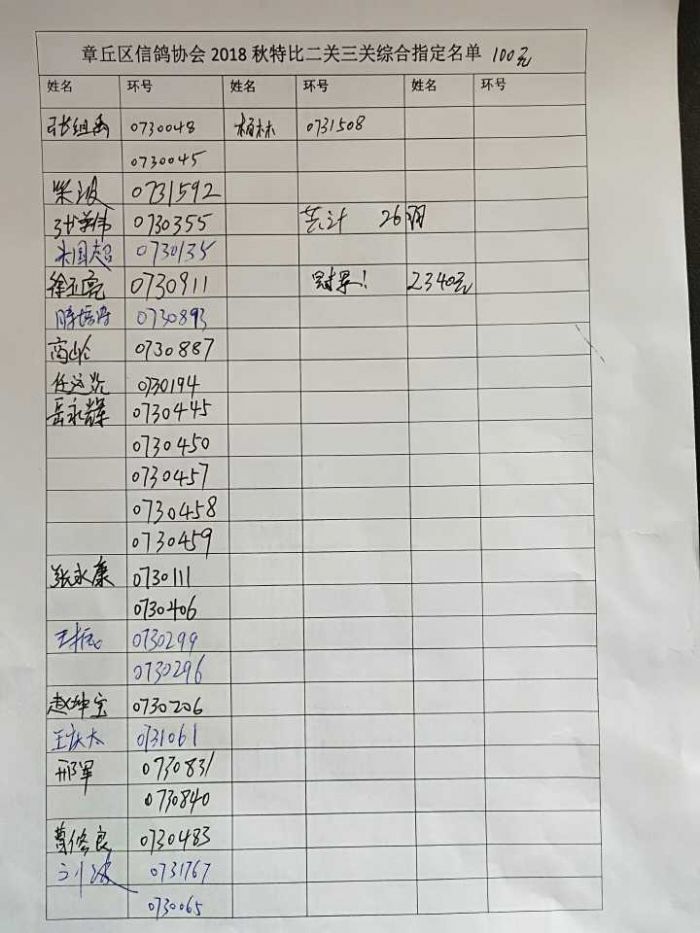 章丘区信鸽协会2018秋特比二关三关综合指定名单 100元
姓名 环号 姓名 环号 姓名 环号
张组禹 0730048 柏林 0731508
0730045
柴波 0731592
张学伟 0730355 共计 26羽
朱国超 0730135
徐亚亮 0730911 2340元
0730893
高岭 0730887
任运兑 0730194
岳永辉 0730445
0730450
0730457
0730458
0730459
张永康 0730111
0730406
王振心 0730299
0730296
赵坤宝 0730206
王庆太 0731061
邢军 0730831
0730840
葛修良 0730483
刘波 0731767
0730065